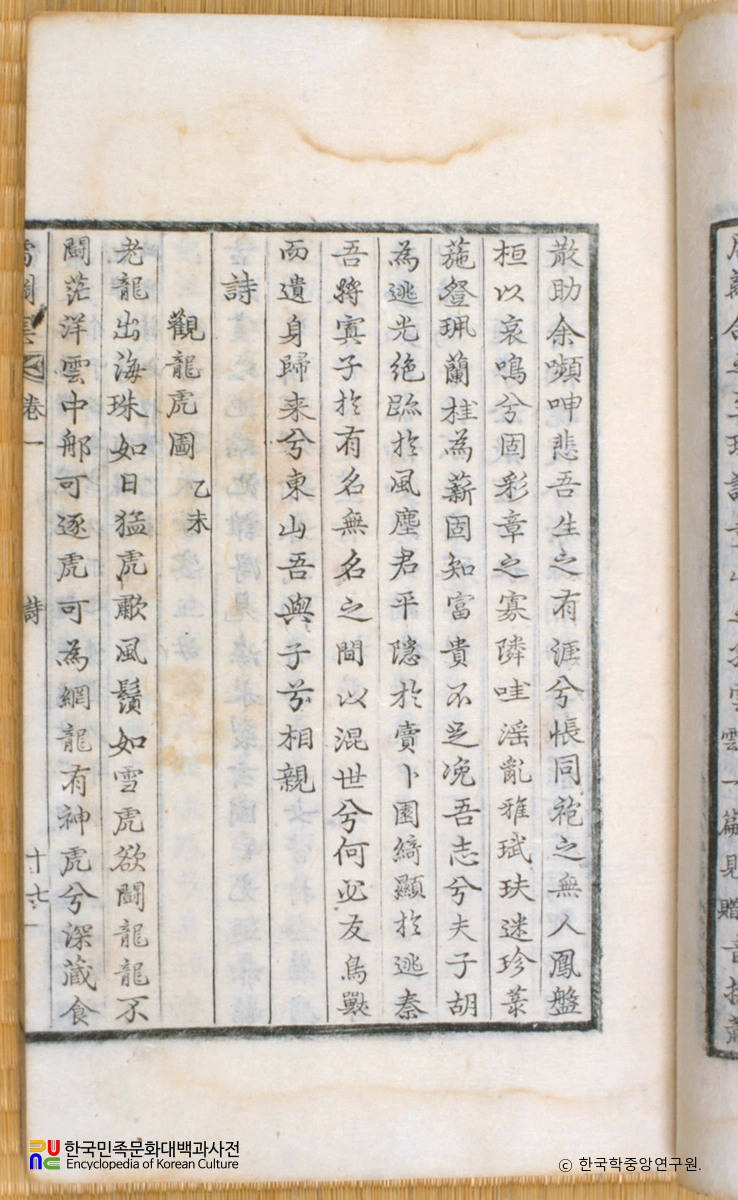 散助余嚬呻悲吾生之有涯兮悵同袍之無人鳳盤
桓以哀鳴兮固彩章之寡隣哇滛亂雅珷玞迷珍菉
葹鐙珮蘭桂為薪固知富貴不足浼吾志兮夫子胡
為逃光絶臨於風塵君平隱於賣卜園綺顯於逃秦
吾將寘子於有名無名之間以混世兮何必友鳥獸
而遺身歸来兮東山吾與子芬相親
詩
觀龍虎圖 乙未
老龍出海珠如日猛虎歠風鬚如雪虎欲鬪龍龍不
鬪茫洋雲中那可逐虎可為網龍有神虎兮深藏食
卷一
詩
十七
한국민족문화대백과사전
Encyclopedia of Korean Culture
© 한국학중앙연구원.